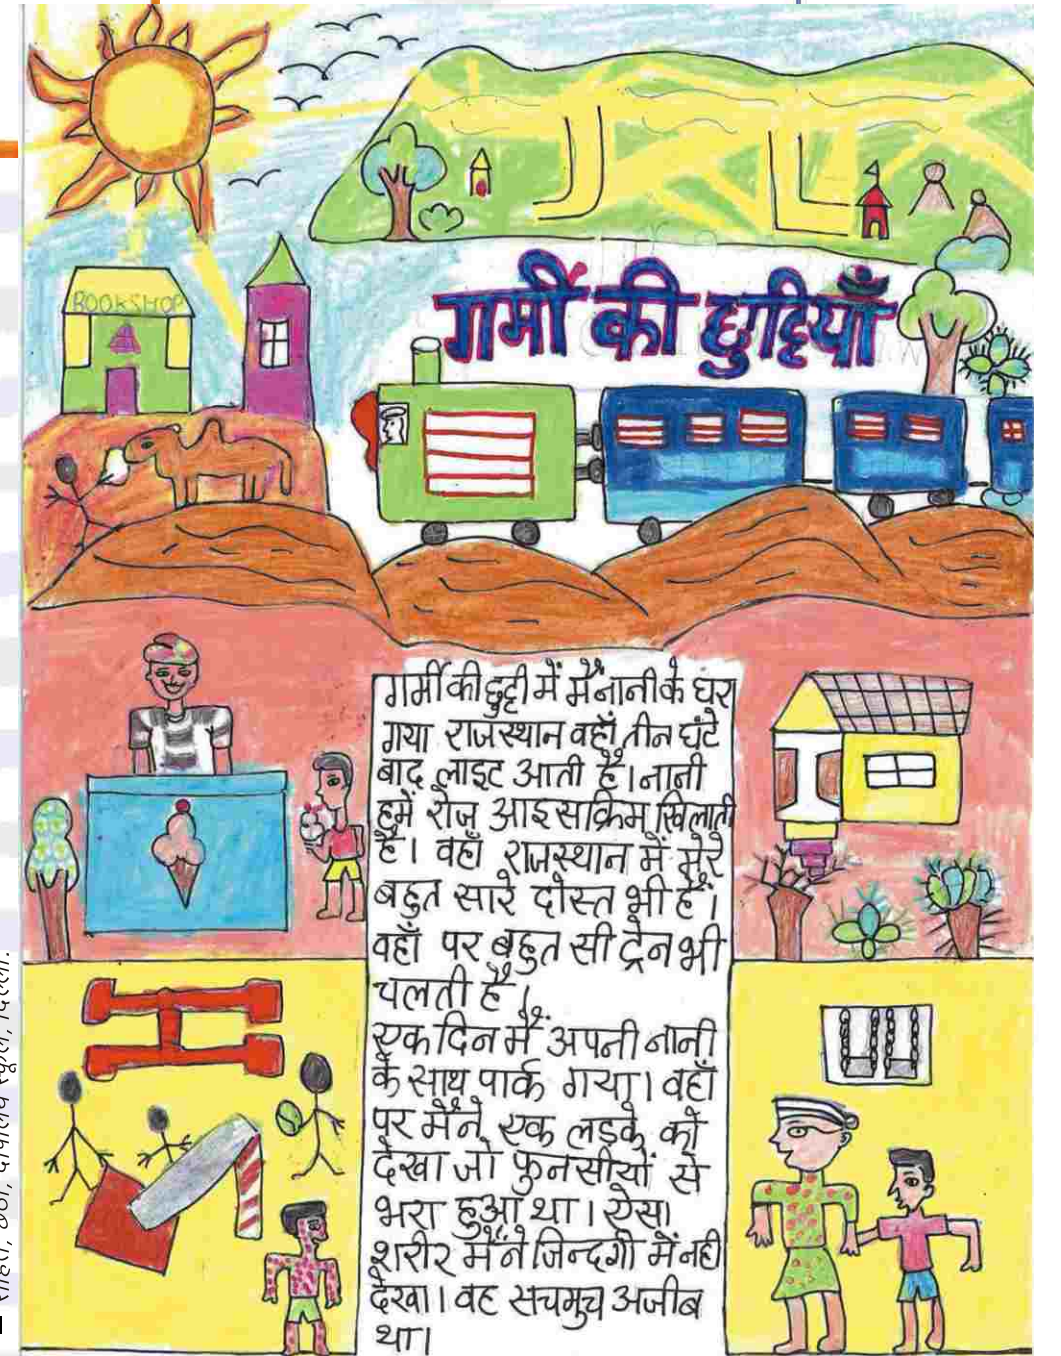 BOOKSHOP
गर्मी की छुट्टियाँ
गर्मी की छुट्टी में मैं नानी के घर
गया राजस्थान वहाँ तीन घंटे
बाद लाइट आती है। नानी
हमें रोज़ आइसक्रिम खिलाती
है। वहाँ राजस्थान में मेरे
बहुत सारे दोस्त भी हैं।
वहाँ पर बहुत सी ट्रेन भी
चलती हैं।
एक दिन मैं अपनी नानी
के साथ पार्क गया। वहाँ
पर मैंने एक लड़के को
देखा जो फुनसीयों से
भरा हुआ था। ऐसा
शरीर मैंने जिन्दगी में नही
देखा। वह सचमुच अजीब
था।
स्कूल, दिल्ली.